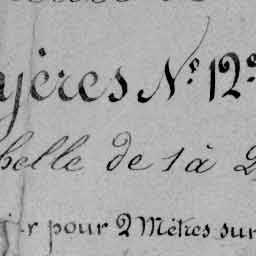 yères N.° 12
helle de 1 à 2
r pour 2 Mètres sur